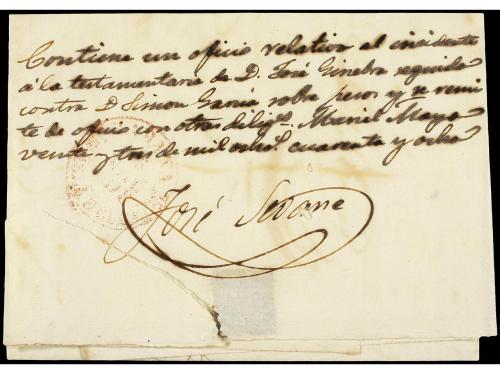 Contiene un oficio relativo al incidente
á la testamentaria de D. José Ginebra seguida
contra D Simon Garcia sobre pesos y se remi
te de oficio con otras diligs. Mariel Mayo
veinte y tres de mil ochos. cuarenta y ocho
José Seoane